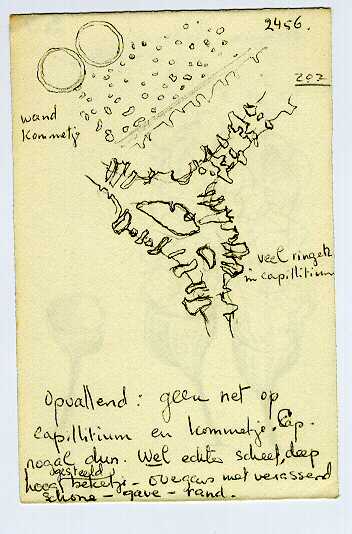 2456.
207
wand
kommetje
veel ringetj
in capillitium
Opvallend : geen net op
capillitium en kommetje. Cap.
nogal dun. Wel echter scheef, diep
gesteeld
hoog bekertje - overgaus met verassend
schone - gave - rand.